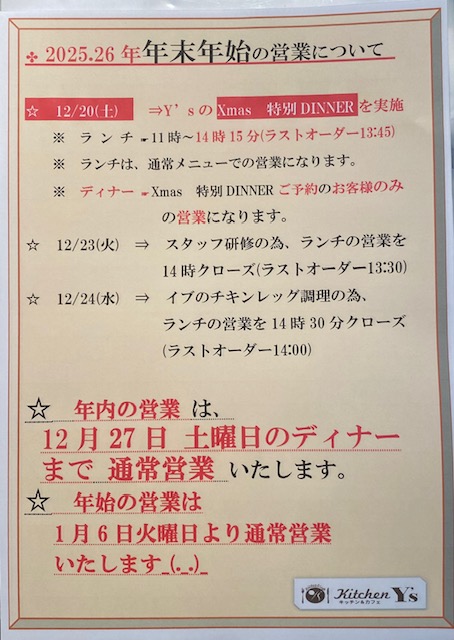 ✤ 2025.26 年年末年始の営業について
☆ 12/20(土) ⇒Y’sのXmas 特別DINNERを実施
※ ランチ☛11時～14時15分(ラストオーダー13:45)
※ ランチは、通常メニューでの営業になります。
※ ディナー☛Xmas 特別DINNERご予約のお客様のみ
の営業になります。
☆ 12/23(火) ⇒ スタッフ研修の為、ランチの営業を
14時クローズ(ラストオーダー13:30)
☆ 12/24(水) ⇒ イブのチキンレッグ調理の為、
ランチの営業を14時30分クローズ
(ラストオーダー14:00)
☆ 年内の営業 は、
12月27日 土曜日のディナー
まで 通常営業 いたします。
☆ 年始の営業は
1月6日火曜日より通常営業
いたします_(._.)_
Kitchen Y's
キッチン&カフェ